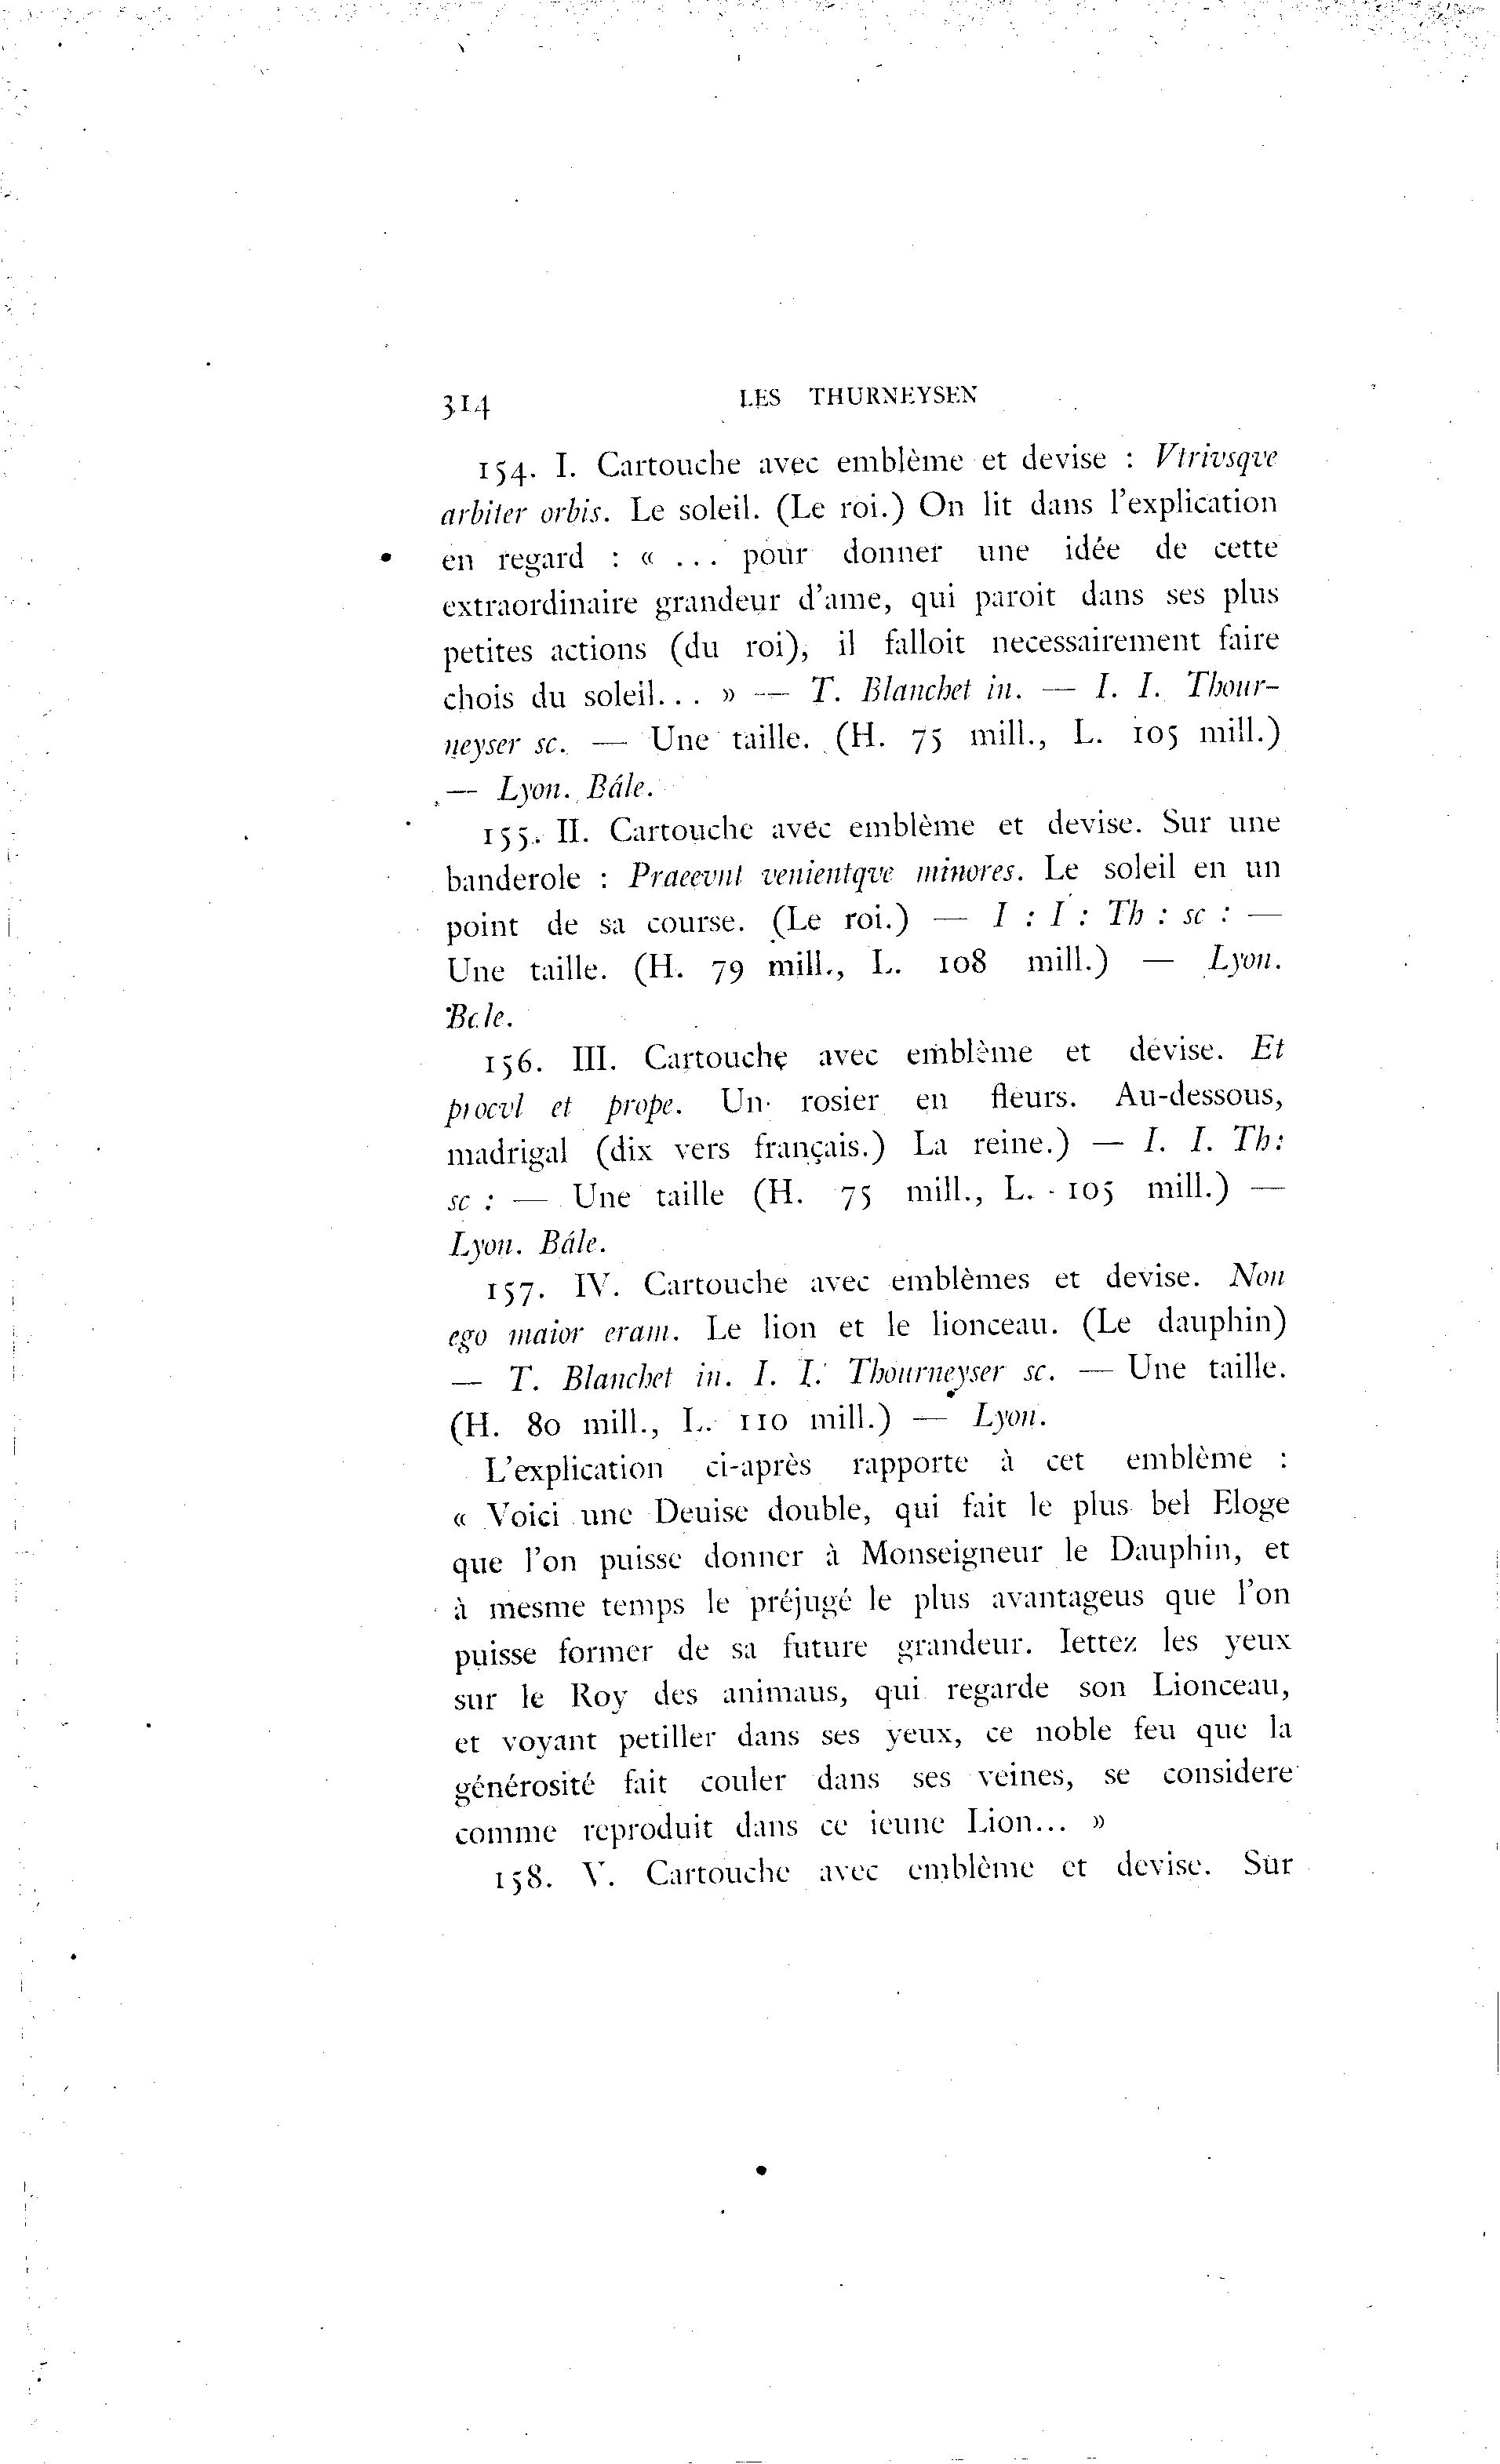 314 LES THURNEYSEN
154. I. Cartouche avec emblème et devise : Vtrivsqve
arbiter orbis. Le soleil. (Le roi.) On lit dans l'explication
en regard : « ... pour donner une idée de cette
extraordinaire grandeur d'ame, qui paroit dans ses plus
petites actions (du roi), il falloit necessairement faire
chois du soleil... » — T. Blanchet in. — I. I. Thour-
neyser sc. — Une taille. (H. 75 mill., L. 105 mill.)
— Lyon. Bâle.
155. II. Cartouche avec emblème et devise. Sur une
banderole : Praeevnt venientqve minores. Le soleil en un
point de sa course. (Le roi.) — I : I : Th : sc : —
Une taille. (H. 79 mill., L. 108 mill.) — Lyon.
Bâle.
156. III. Cartouche avec emblème et devise. Et
procvl et prope. Un rosier en fleurs. Au-dessous,
madrigal (dix vers français.) La reine.) — I. I. Th:
sc : — Une taille (H. 75 mill., L. 105 mill.) —
Lyon. Bâle.
157. IV. Cartouche avec emblèmes et devise. Non
ego maior eram. Le lion et le lionceau. (Le dauphin)
— T. Blanchet in. I. I. Thourneyser sc. — Une taille.
(H. 80 mill., L. 110 mill.) — Lyon.
L'explication ci-après rapporte à cet emblème :
« Voici une Deuise double, qui fait le plus bel Eloge
que l'on puisse donner à Monseigneur le Dauphin, et
à mesme temps le préjugé le plus avantageus que l'on
puisse former de sa future grandeur. Iettez les yeux
sur le Roy des animaus, qui regarde son Lionceau,
et voyant petiller dans ses yeux, ce noble feu que la
générosité fait couler dans ses veines, se considere
comme reproduit dans ce ieune Lion... »
158. V. Cartouche avec emblème et devise. Sur